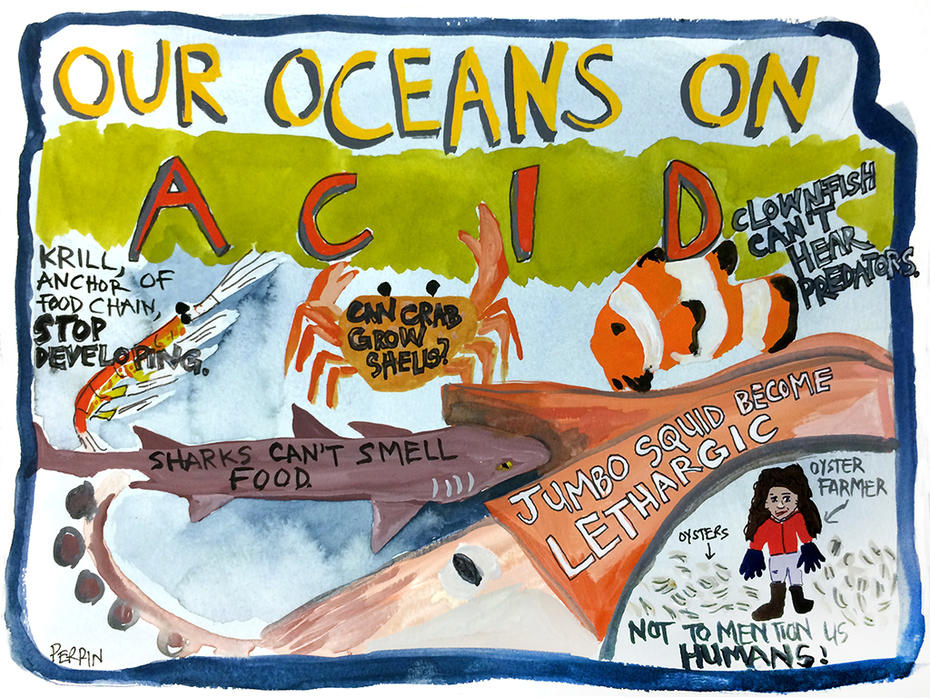 OUR OCEANS ON
ACID
KRILL,
ANCHOR OF
FOOD CHAIN,
STOP
DEVELOPING.
CAN CRAB
GROW
SHELLS?
CLOWNFISH
CAN'T
HEAR
PREDATORS.
SHARKS CAN'T SMELL
FOOD.
JUMBO SQUID BECOME
LETHARGIC
OYSTER
FARMER
OYSTERS
NOT TO MENTION US
HUMANS!
PERRIN